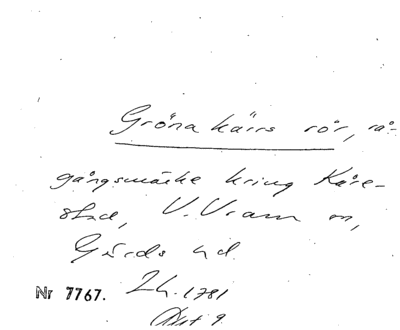 Gröna kärrs rör, rå-
gångsmärke kring Kåre-
stad, V. Vram sn,
Gärds hd.
Lh. 1781
Nr 7767.
Akt 9